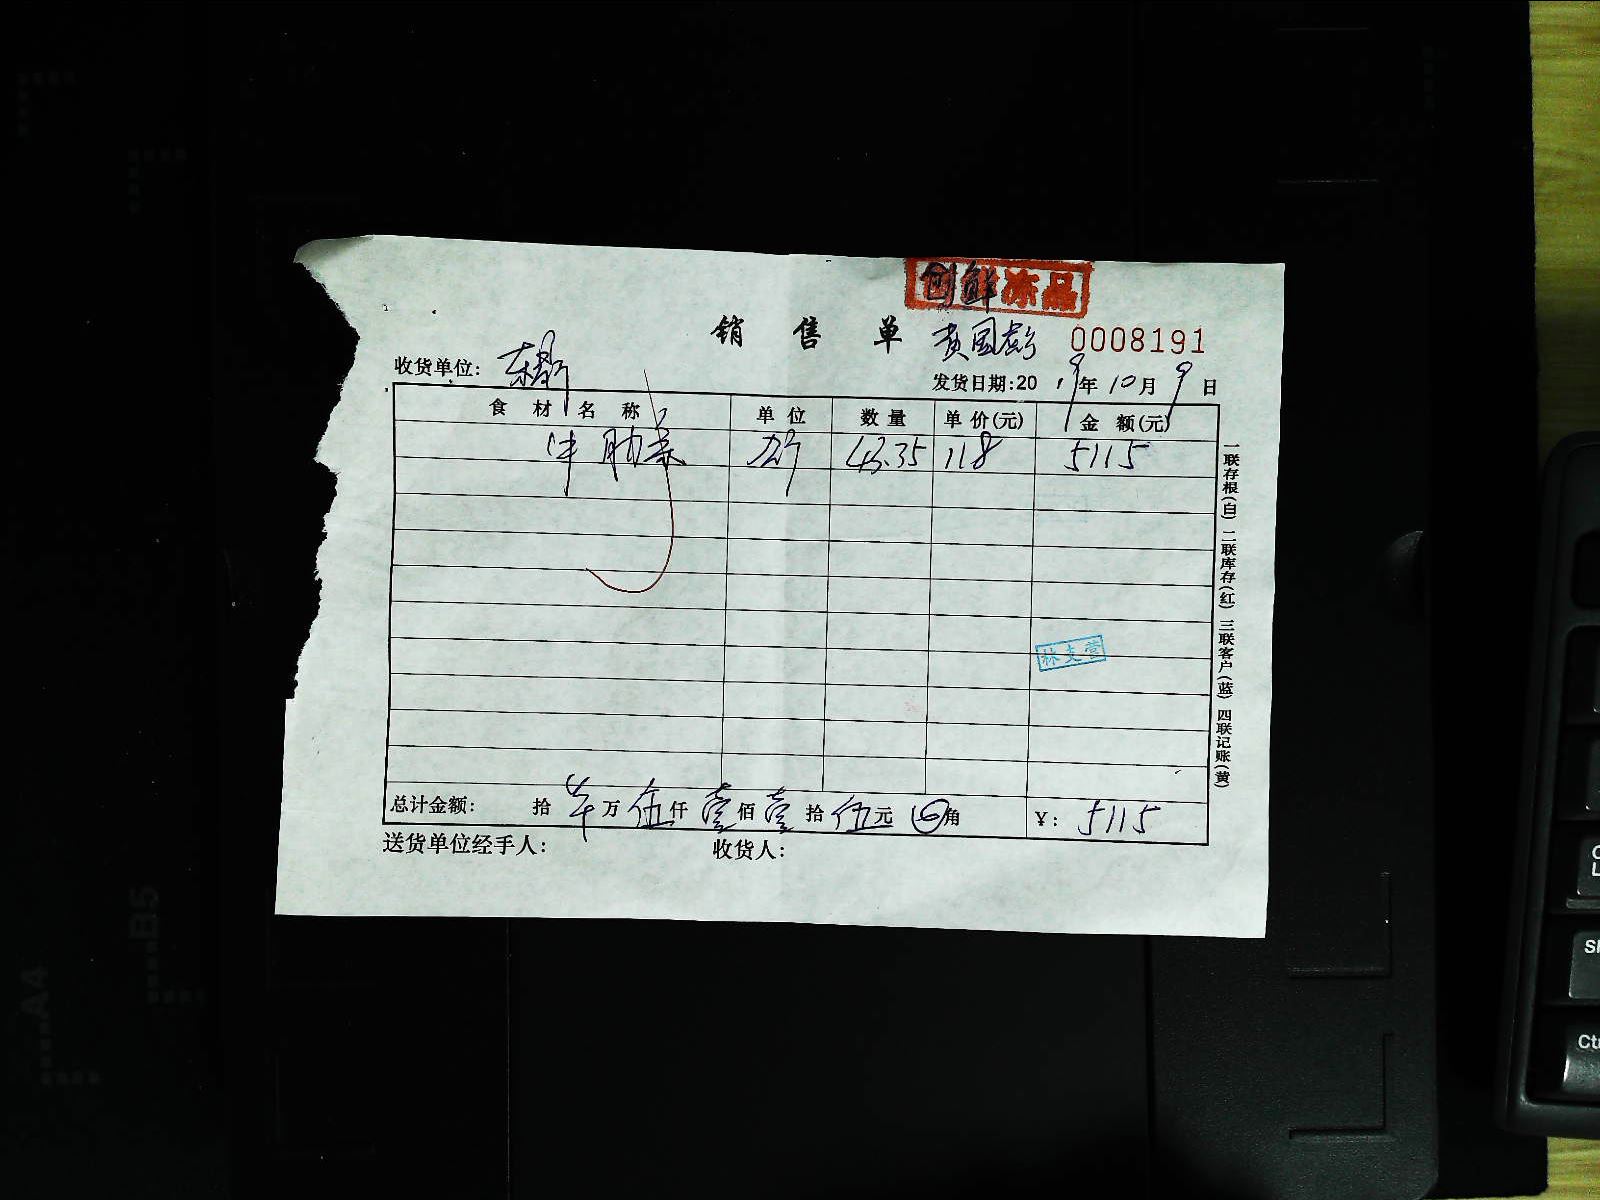 创鲜冻品
销售单 黄国彭 0008191
收货单位:
发货日期:2019年10月9日
食材名称 单位 数量 单价(元) 金额(元)
牛肋条 斤 43.35 118 5115
一联存根(白) 二联库存(红) 三联客户(蓝) 四联记账(黄)
林支营
总计金额: 拾 万伍仟壹佰壹拾伍元 角 ¥: 5115
送货单位经手人: 收货人:
B5
A4
Ctr